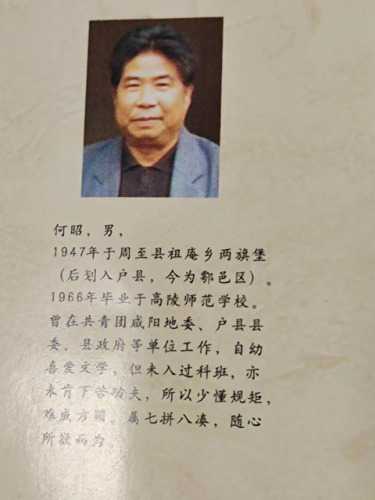 何昭，男，
1947年于周至县祖庵乡两旗堡
（后划入户县，今为鄠邑区）。
1966年毕业于高陵师范学校。
曾在共青团咸阳地委、户县县
委、县政府等单位工作，自幼
喜爱文学，但未入过科班，亦
未肯下苦功夫，所以少懂规矩，
难成方圆。属七拼八凑，随心
所欲而为